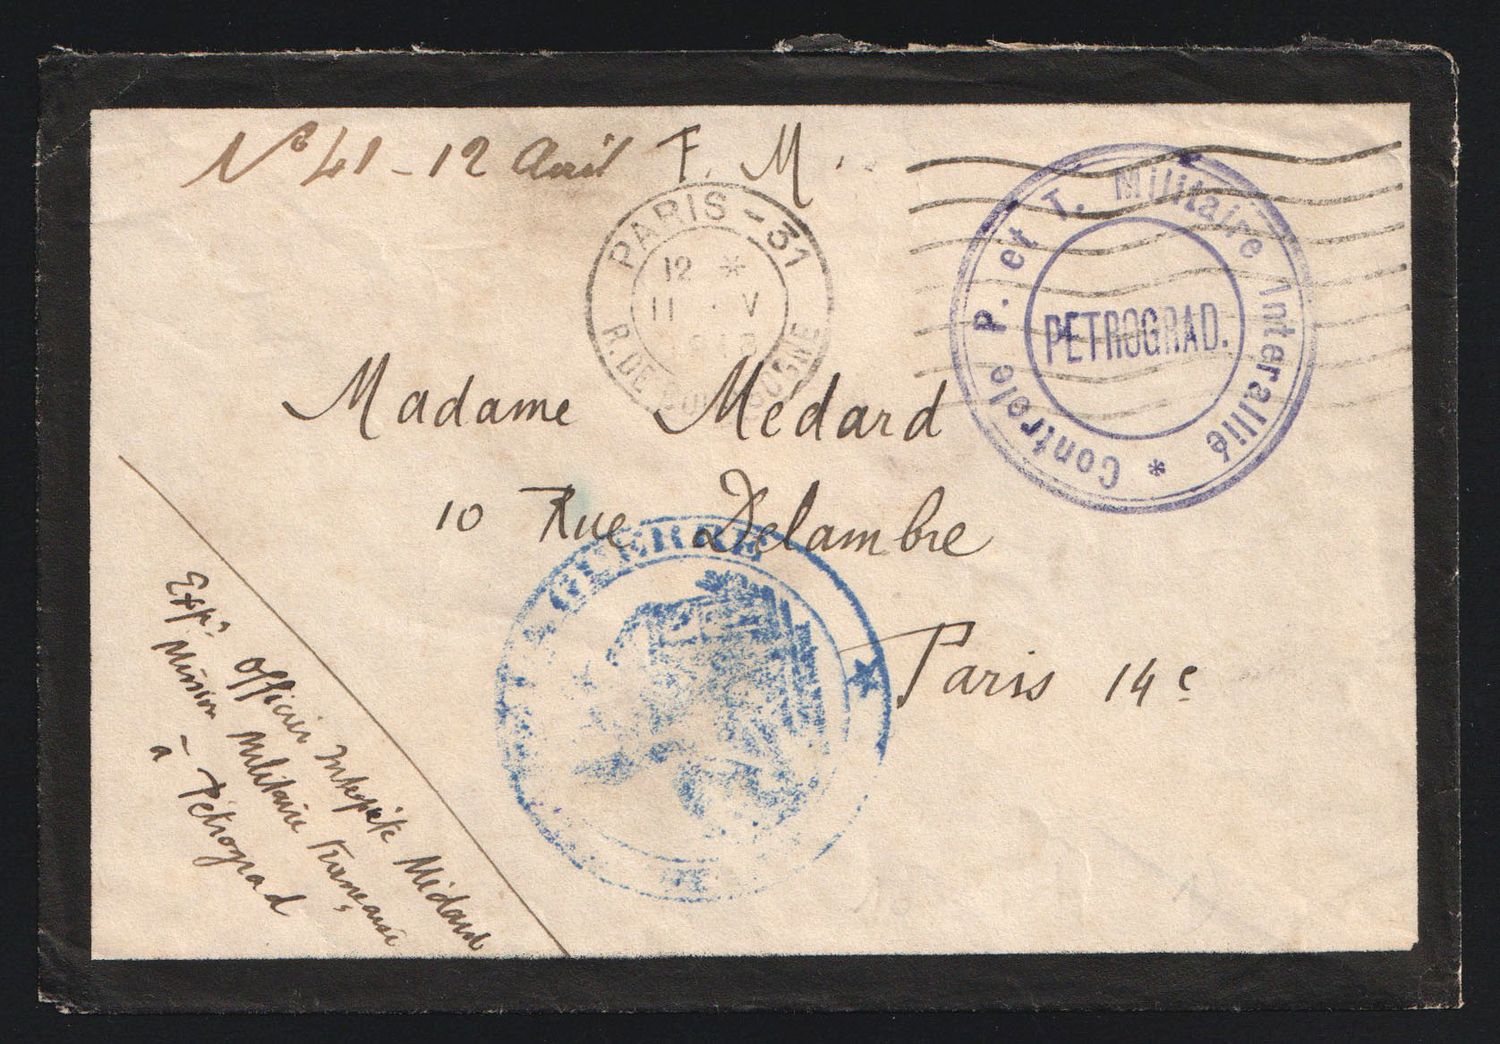 Nº 41 - 12 Avril F. M.
PARIS - 31
12 *
11 · V
R. DE BOURGOGNE
Controle P. et T. Militaire Interallié *
PETROGRAD.
Madame Médard
10 Rue Delambre
Paris 14e
GUERRE
Expr Officier Interprète Médard
Mission Militaire Française
à Pétrograd